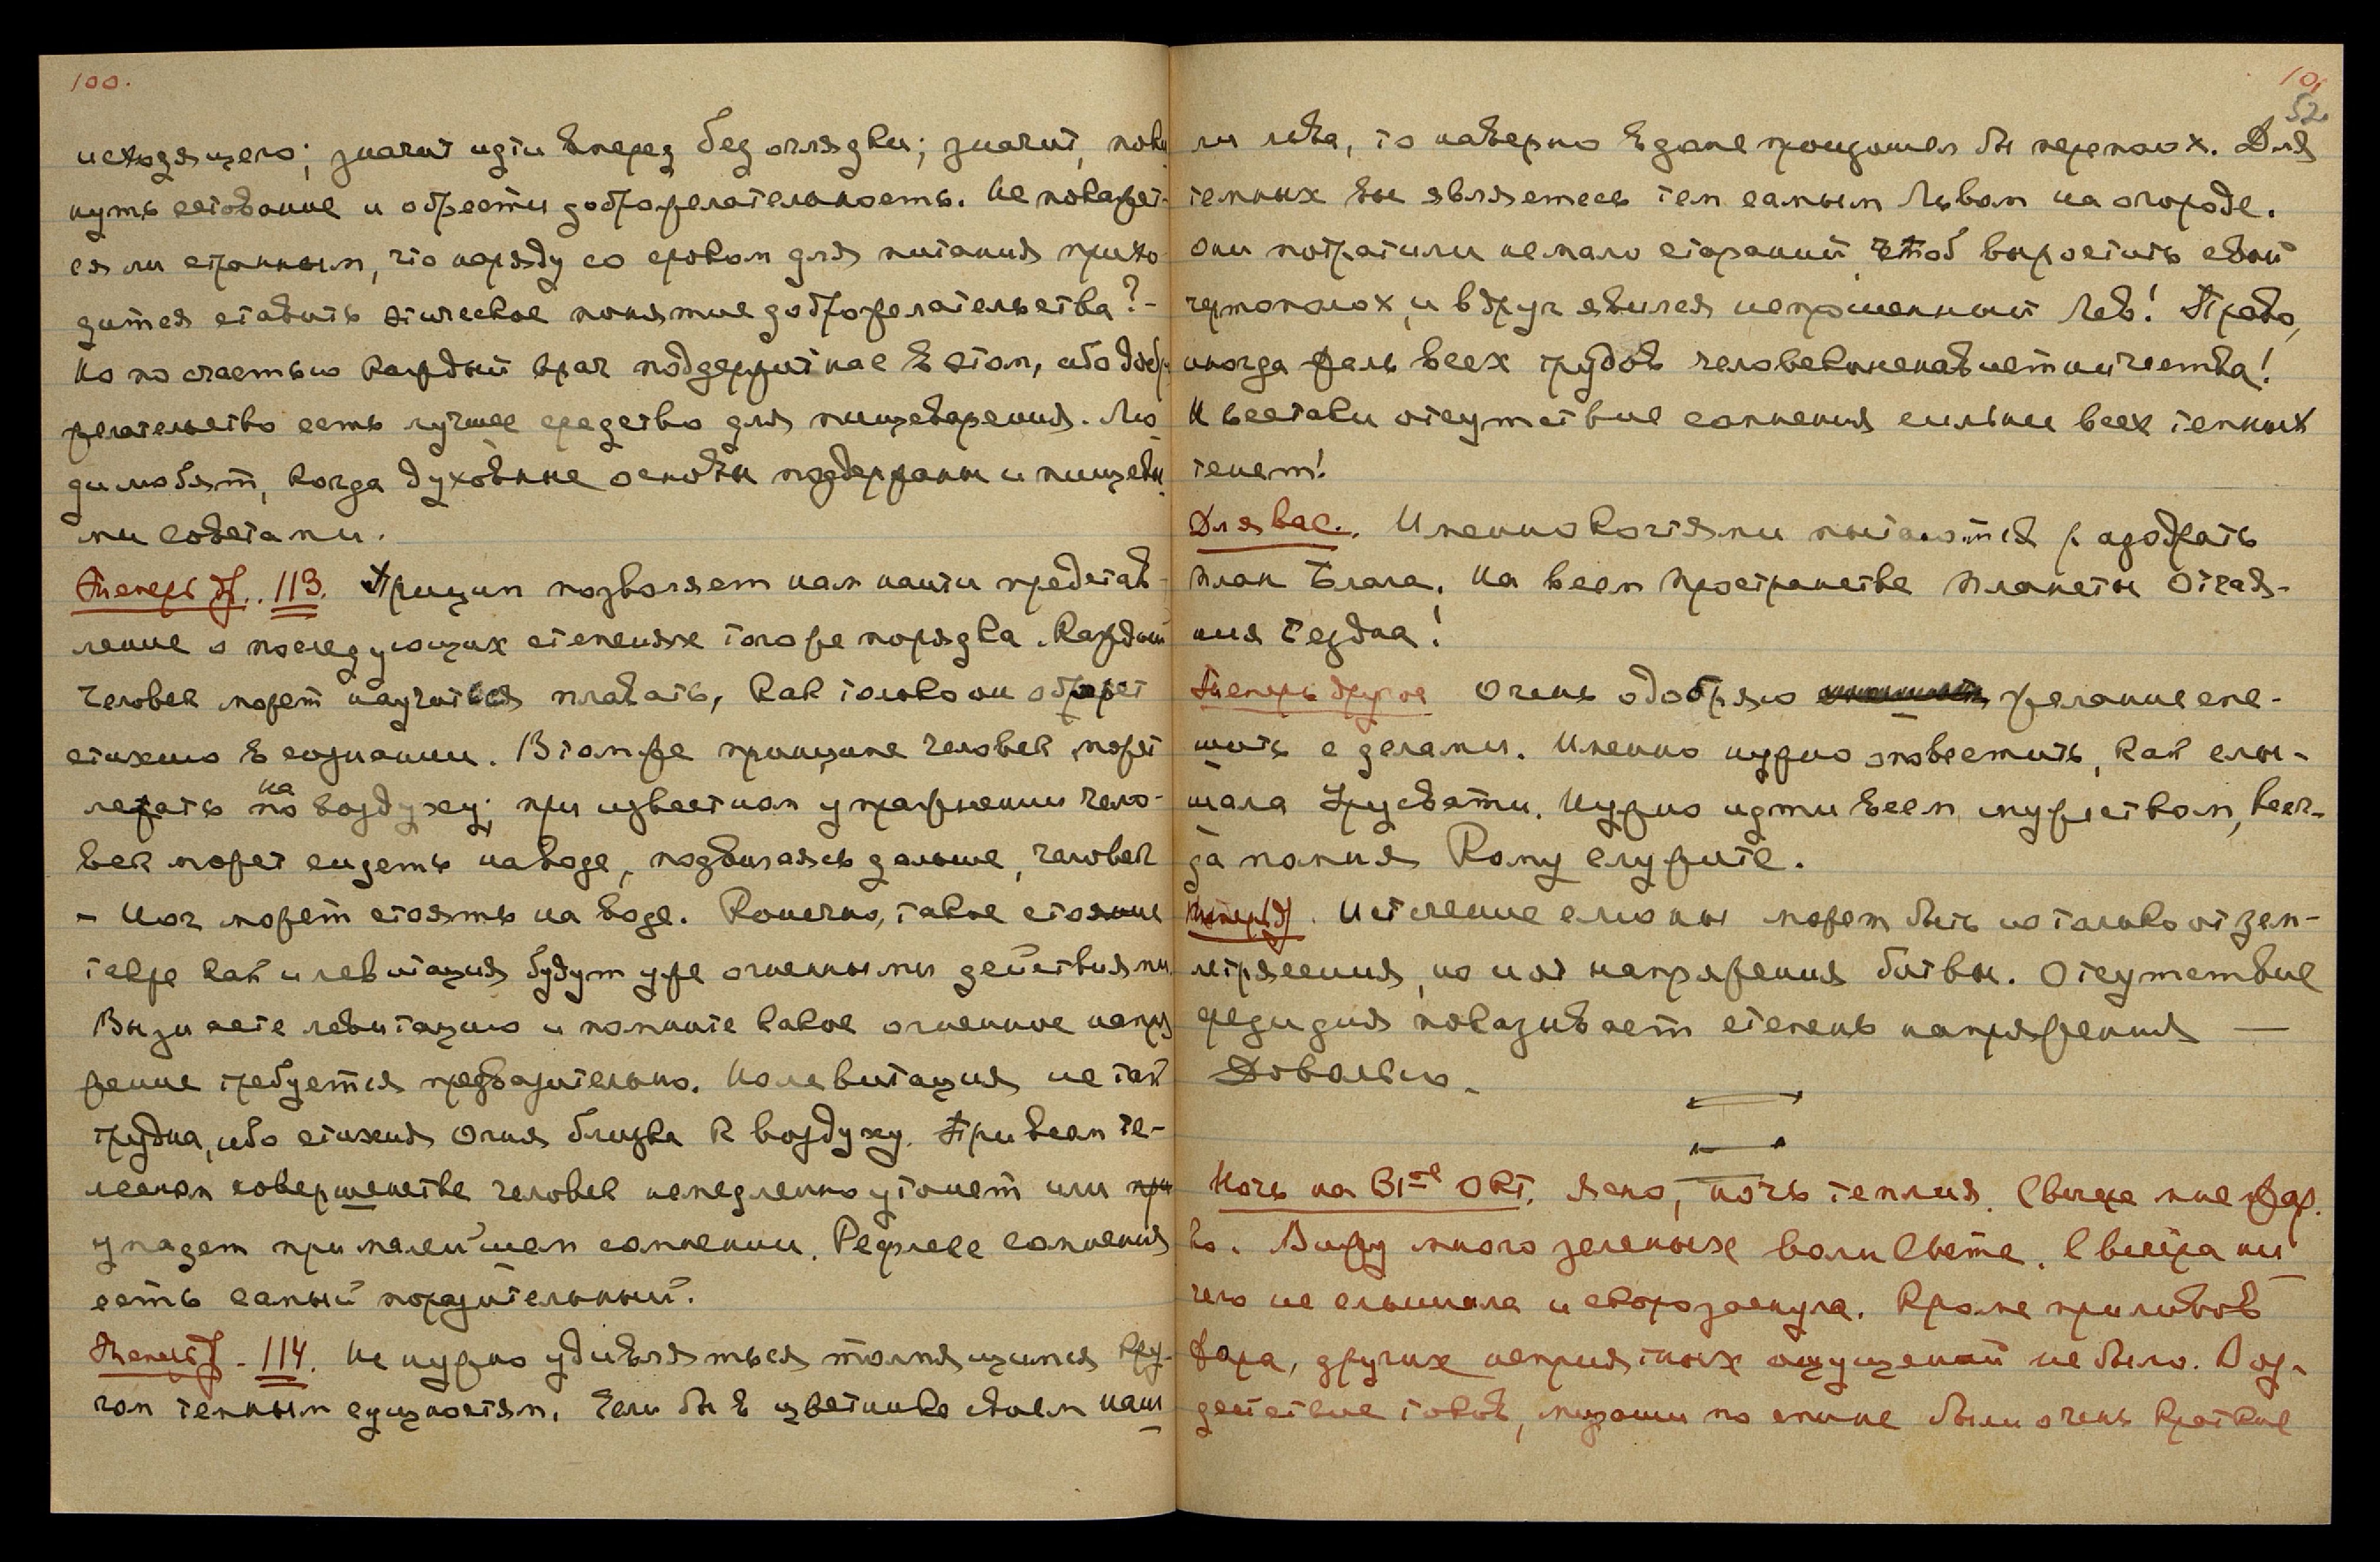 100.
исходящего; значит идти вперед без оглядки; значит, поки-
нуть сетование и обрести доброжелательность. Не покажет-
ся ли странным, что наряду со сроком для питания прихо-
дится ставить этическое понятие доброжелательства? -
Но по счастью каждый врач поддержит нас в этом, ибо добро
желательство есть лучшее средство для пищеварения. Лю-
ди любят, когда духовные основы поддержаны и пищевы-
ми советами.
Теперь др.. 113. Принцип позволяет нам найти представ-
ление о последующих степенях того же порядка. Каждый
человек может научиться плавать, как только он обретет
стихию в сознании. В том же принципе человек может
лежать на воздуху; при известном упражнении чело-
век может сидеть на воде, подвигаясь дальше, человек
- Иог может стоять на воде. Конечно, такое стояние
также как и левитация будут уже огненными действиями.
Вы знаете левитацию и помните какое огненное напря
жение требуется предварительно. Но левитация не так
трудна, ибо стихия Огня близка к воздуху. При всем те-
лесном совершенстве человек немедленно утонет или
упадет при малейшем сомнении. Рефлекс сомнения
есть самый поразительный.
Теперь др. 114. Не нужно удивляться толпящимся кру-
гом темным сущностям. Если бы в цветнике своем наш

101
52.
ли льва, то наверно в доме произошел бы переполох. Для
темных вы являетесь тем самым Львом на огороде.
Они потратили немало стараний, чтоб вырастить свой
чертополох, и вдруг явился непрошенный Лев! Право,
иногда жаль всех трудов человеконенавистничества!
И всетаки отсутствие сомнения сильнее всех темных
тенет!
Для вас. Именно когтями пытаются разодрать
план Блага. На всем пространстве планеты Отчая-
ния бездна!
Теперь другое Очень одобряю желание спе-
шить с делами. Именно нужно оповестить, как слы-
шала Урусвати. Нужно идти всем мужеством, всег-
да помня Кому служите.
Теперь др. Истечение слюны может быть не только от зем-
летрясения, но и от напряжения битвы. Отсутствие
показывает степень напряжения —
Довольно.
Ночь на 31ое Окт. Ясно, ночь теплая. Свыше мне жар-
ко. Вижу много зеленых волн Света. С вечера ни
чего не слышала и скоро заснула. Кроме приливов
жара, других неприятных ощущений не было. Воз-
действие токов, по спине были очень краткие